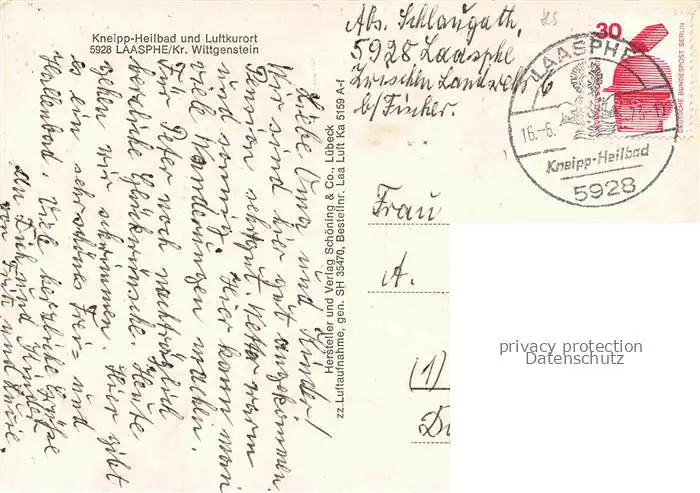 Kneipp-Heilbad und Luftkurort
5928 LAASPHE/Kr. Wittgenstein
Abs. Schlaugath,
5928 Laasphe
Zwischen Landweh 6
b/Fischer.
30
DEUTSCHE BUNDESPOST BERLIN
LAASPHE
16.-6.
Kneipp-Heilbad
5928
Liebe Oma und Kinder!
Wir sind hier gut angekommen.
Pension sehr gut. Wetter warm
und sonnig. Hier kann man
viele Wanderungen machen.
Für Peter noch nachträglich
herzliche Glückwünsche. Heute
gehen wir schwimmen. Hier gibt
es ein sehr schönes Frei- und
Hallenbad. Viele herzliche Grüße
an Dich und Kinder
von Fritz und
Hersteller und Verlag Schöning & Co., Lübeck
zz. Luftaufnahme, gen. SH 35470, Bestellnr. Laa Luft Ka 5159 A-f
Frau
A.
(1)
privacy protection
Datenschutz